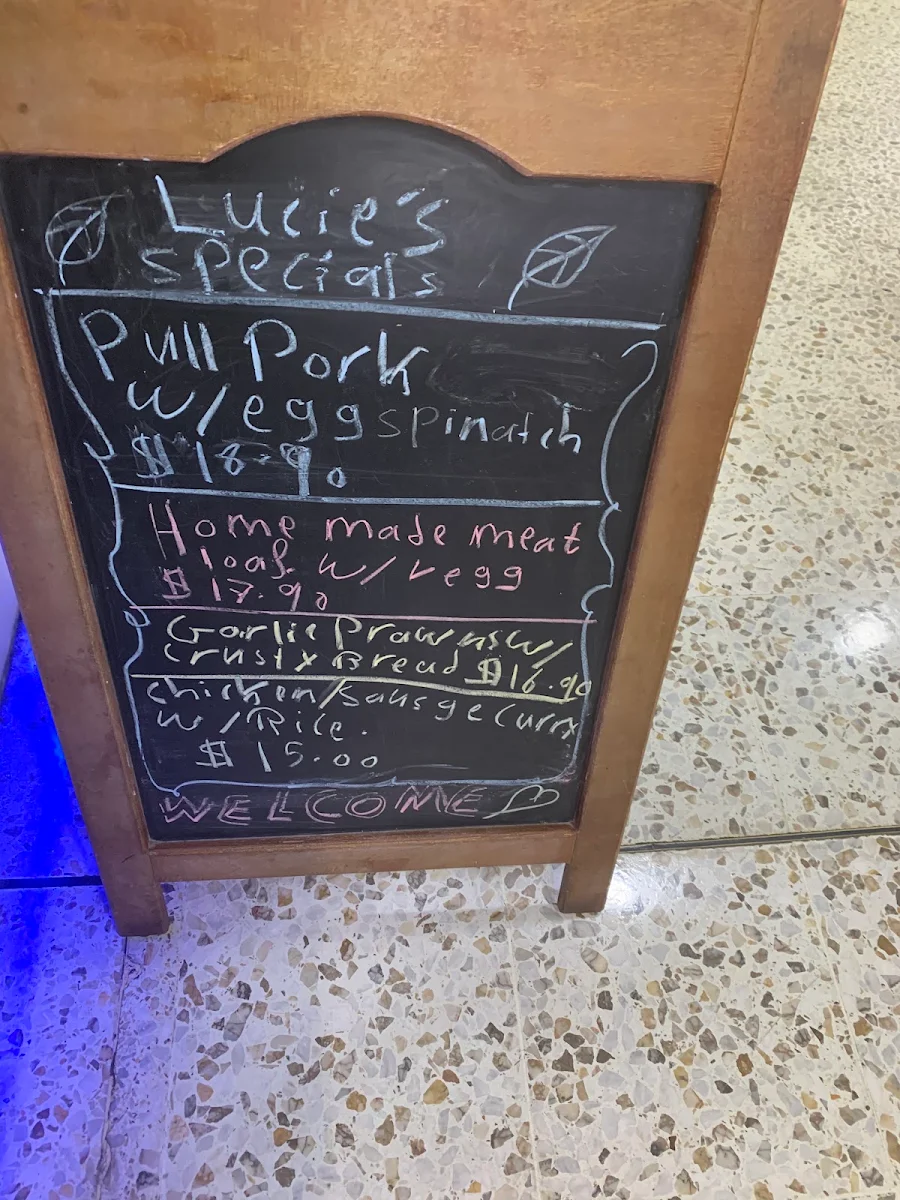 Lucie's
specials
Pull Pork
w/egg spinatch
$18.90
Home made meat
loaf w/vegg
$17.90
Garlic Prawns w/
crusty Bread $16.90
chicken/sausge curry
w/Rice.
$15.00
WELCOME